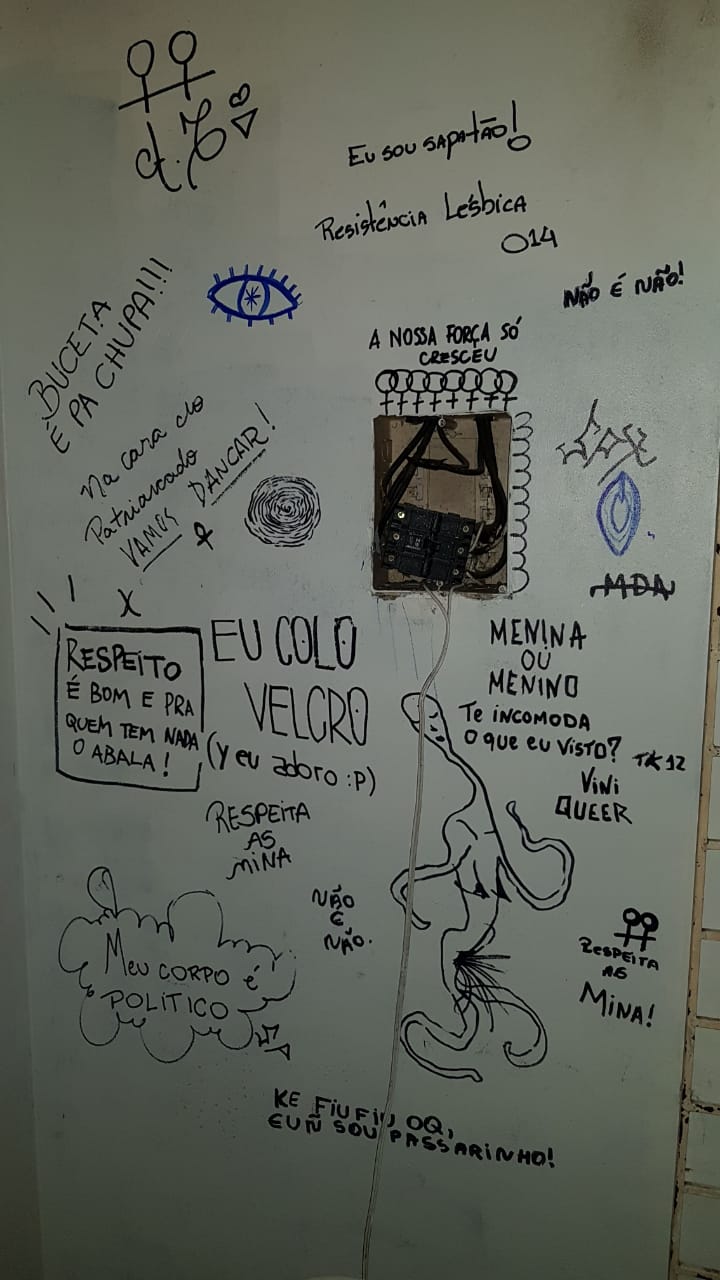 Eu sou sapatão!
Resistência Lésbica
014
NÃO É NÃO!
BUCETA
É PA CHUPA!!!
A NOSSA FORÇA SÓ
CRESCEU
Na cara do
Patriarcado
VAMOS DANCAR!
MDN
X
RESPEITO
É BOM E PRA
QUEM TEM NADA
O ABALA!
EU COLO
VELCRO
(y eu adoro :P)
MENINA
OU
MENINO
Te incomoda
O que eu visto?
TK12
Vini
QUEER
RESPEITA
AS
MINA
NÃO
É
NÃO.
MEU CORPO é
POLÍTICO
RESPEITA
AS
MINA!
KE FIU FIU OQ,
EU Ñ SOU PASSARINHO!